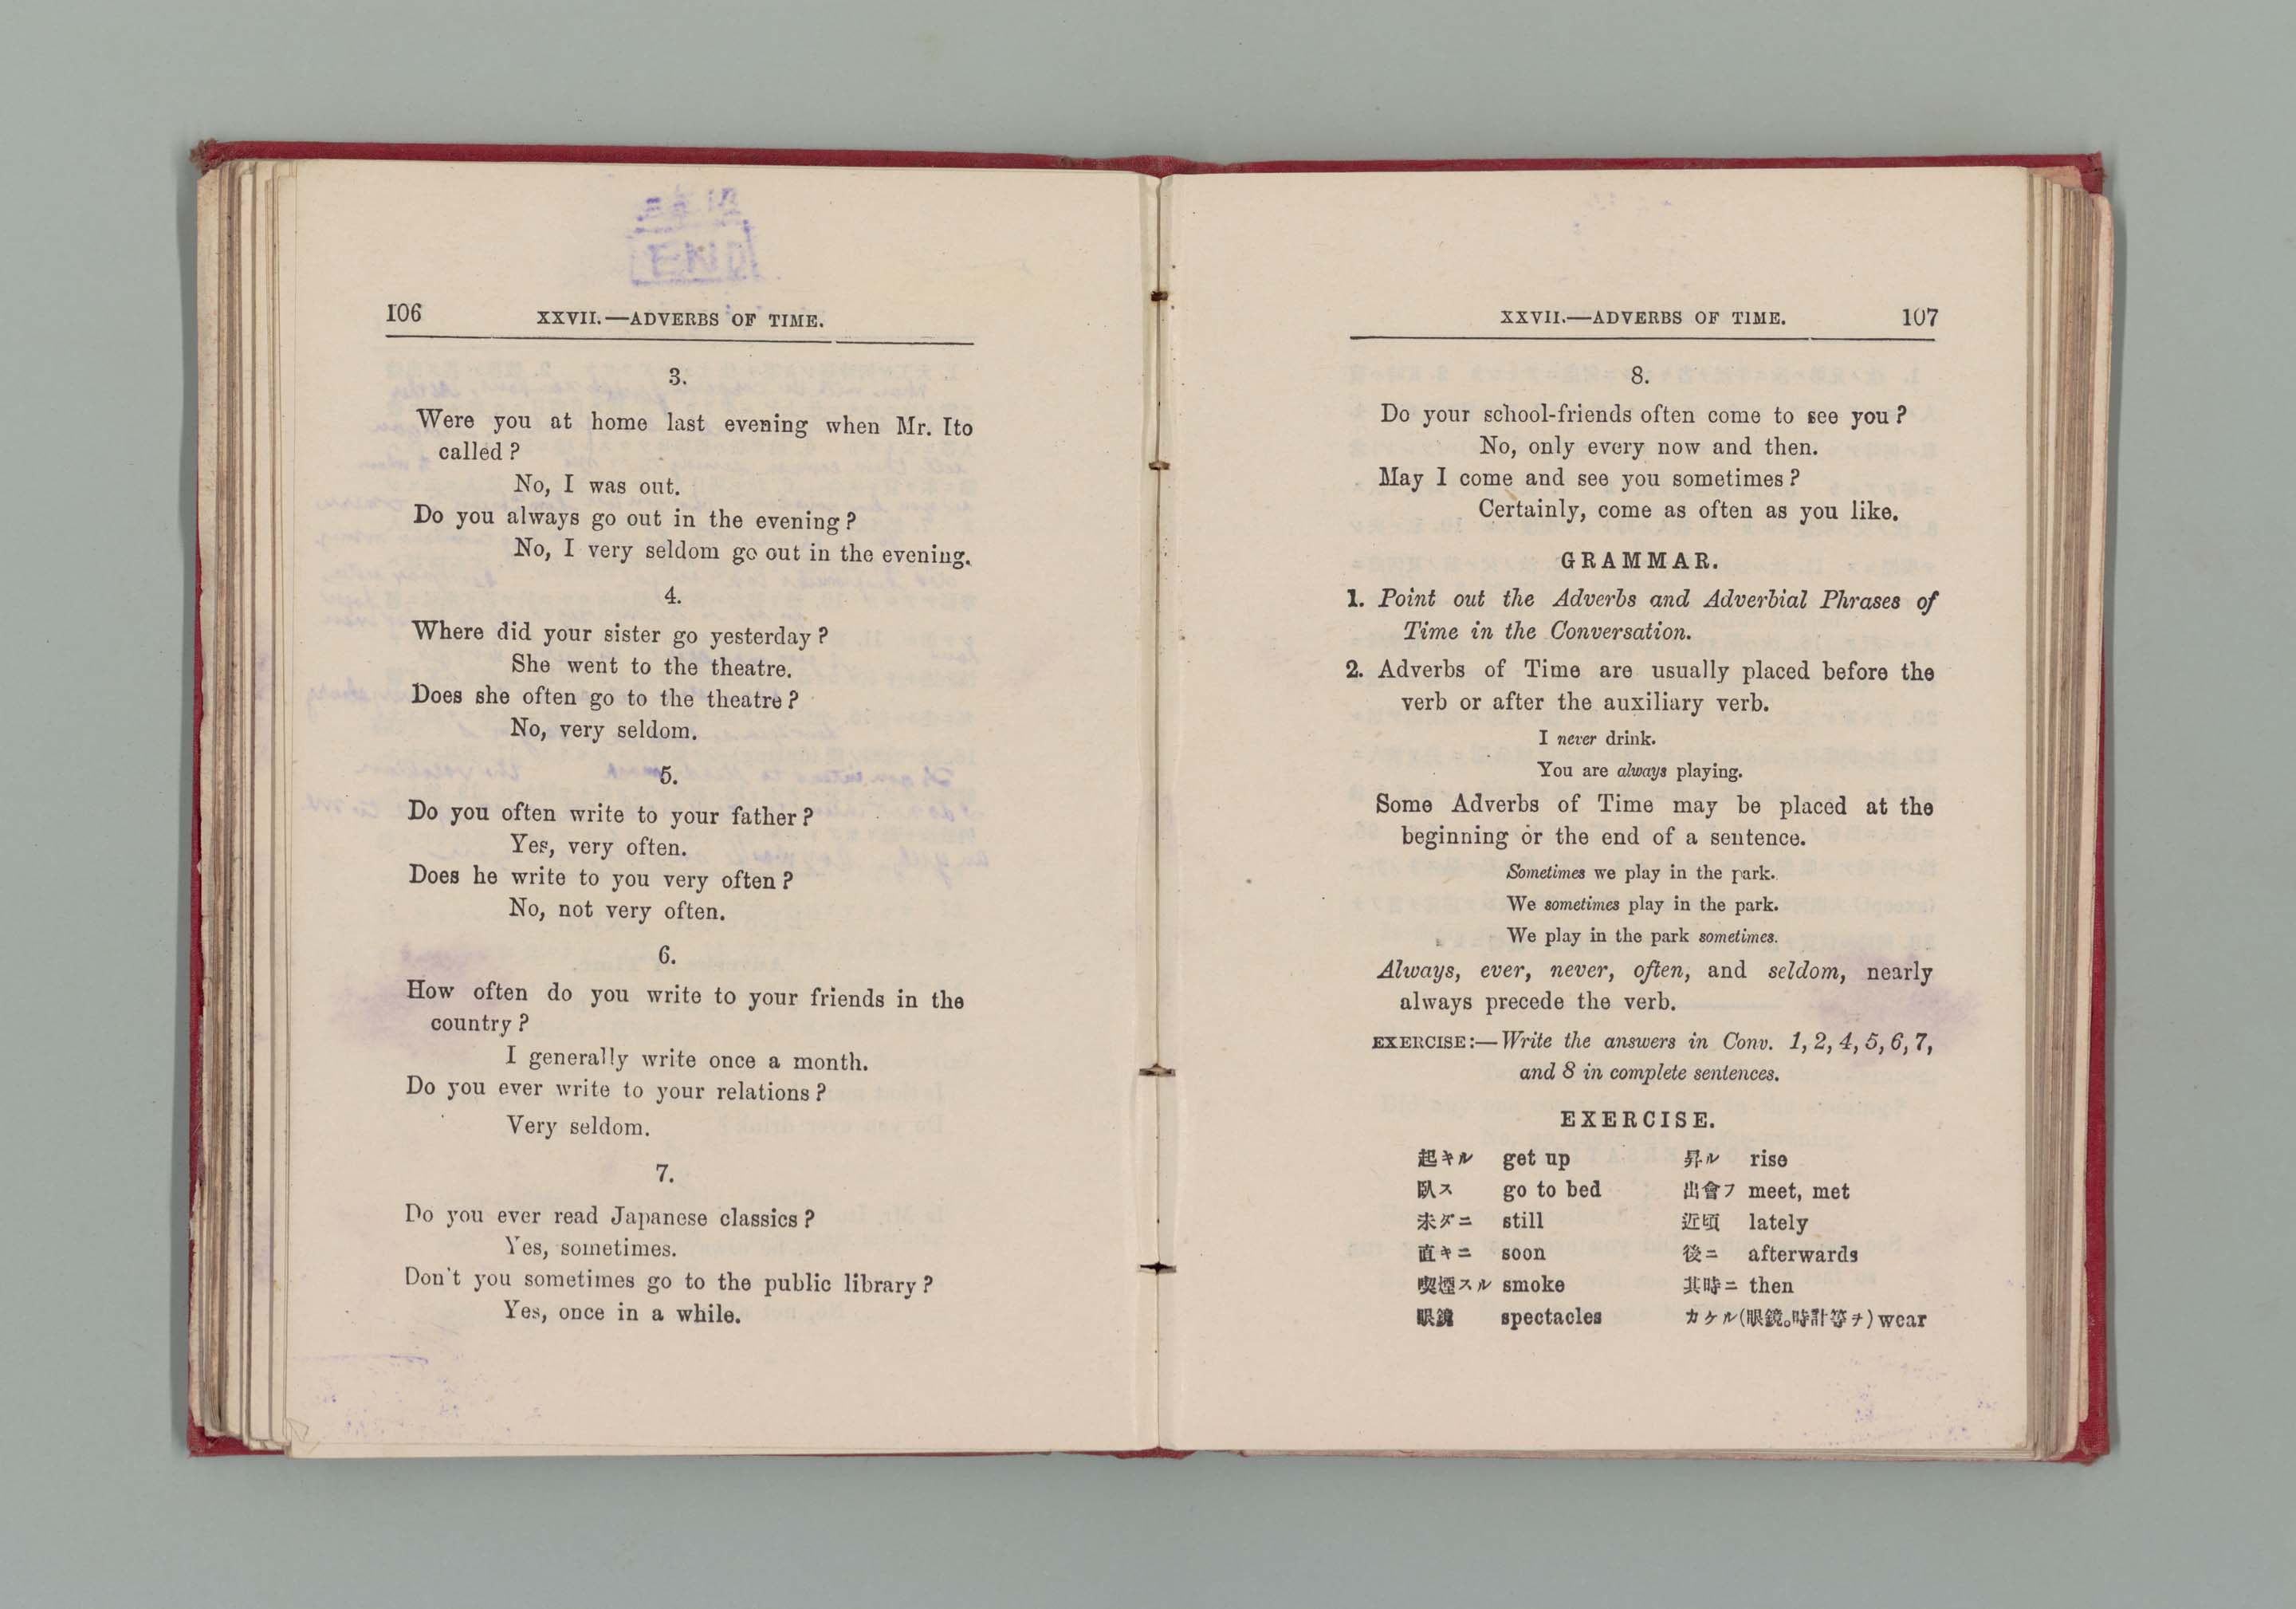 106 XXVII.—ADVERBS OF TIME.
3.
Were you at home last evening when Mr. Ito
called?
No, I was out.
Do you always go out in the evening?
No, I very seldom go out in the evening.
4.
Where did your sister go yesterday?
She went to the theatre.
Does she often go to the theatre?
No, very seldom.
5.
Do you often write to your father?
Yes, very often.
Does he write to you very often?
No, not very often.
6.
How often do you write to your friends in the
country?
I generally write once a month.
Do you ever write to your relations?
Very seldom.
7.
Do you ever read Japanese classics?
Yes, sometimes.
Don't you sometimes go to the public library?
Yes, once in a while.
XXVII.—ADVERBS OF TIME. 107
8.
Do your school-friends often come to see you?
No, only every now and then.
May I come and see you sometimes?
Certainly, come as often as you like.
GRAMMAR.
1. Point out the Adverbs and Adverbial Phrases of
Time in the Conversation.
2. Adverbs of Time are usually placed before the
verb or after the auxiliary verb.
I never drink.
You are always playing.
Some Adverbs of Time may be placed at the
beginning or the end of a sentence.
Sometimes we play in the park.
We sometimes play in the park.
We play in the park sometimes.
Always, ever, never, often, and seldom, nearly
always precede the verb.
EXERCISE:—Write the answers in Conv. 1, 2, 4, 5, 6, 7,
and 8 in complete sentences.
EXERCISE.
起キル get up 昇ル rise
臥ス go to bed 出會フ meet, met
未ダニ still 近頃 lately
直キニ soon 後ニ afterwards
喫煙スル smoke 其時ニ then
眼鏡 spectacles カケル(眼鏡。時計等ヲ) wear